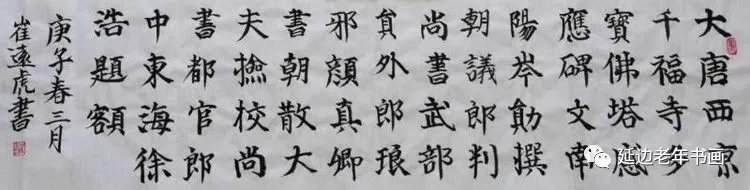 大唐西京
千福寺多
寶佛塔感
應碑文南
陽岑勛撰
朝議郎判
尚書武部
員外郎琅
邪顔真卿
書朝散大
夫撿校尚
書都官郎
中東海徐
浩題額
庚子春三月
崔遠虎書
延边老年书画